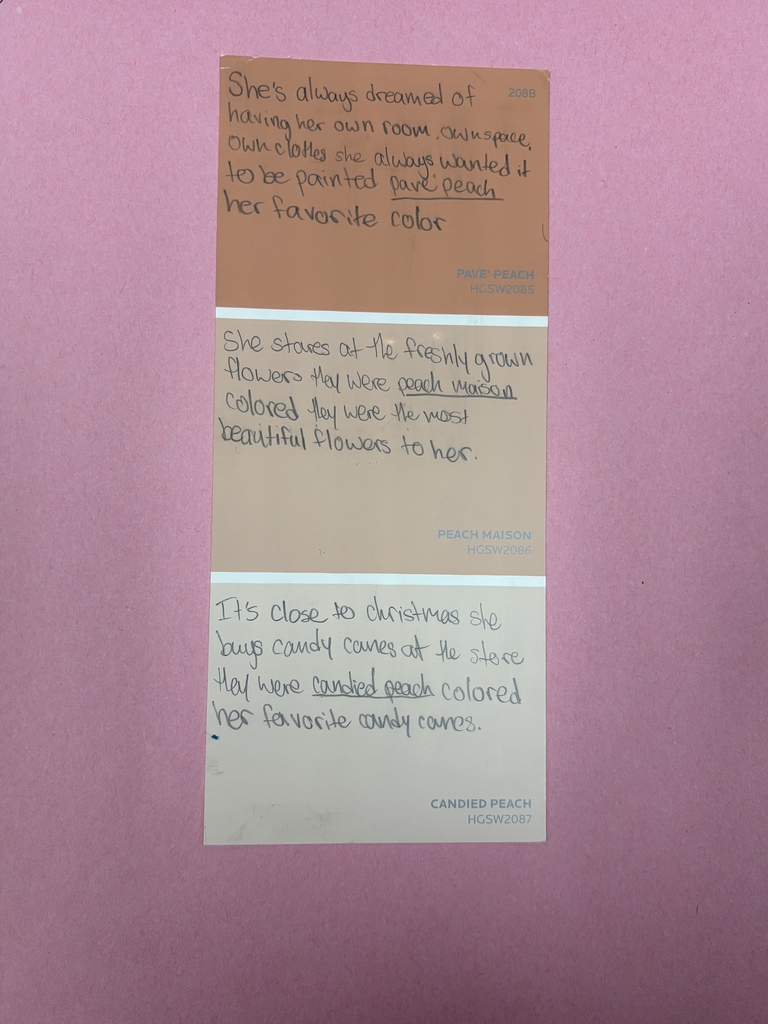 She's always dreamed of
208B
having her own room, own space,
own clothes she always wanted it
to be painted pavé peach
her favorite color
PAVE' PEACH
HGSW2085
She stares at the freshly grown
flowers they were peach maison
colored they were the most
beautiful flowers to her.
PEACH MAISON
HGSW2086
It's close to christmas she
buys candy canes at the store
they were candied peach colored
her favorite candy canes.
CANDIED PEACH
HGSW2087